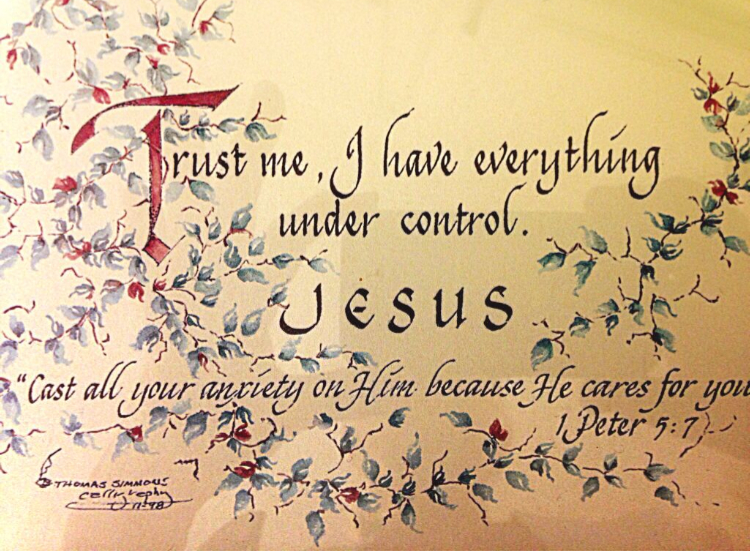 Trust me, I have everything
under control.
JESUS
“Cast all your anxiety on Him because He cares for you
1 Peter 5:7
THOMAS SIMMONS